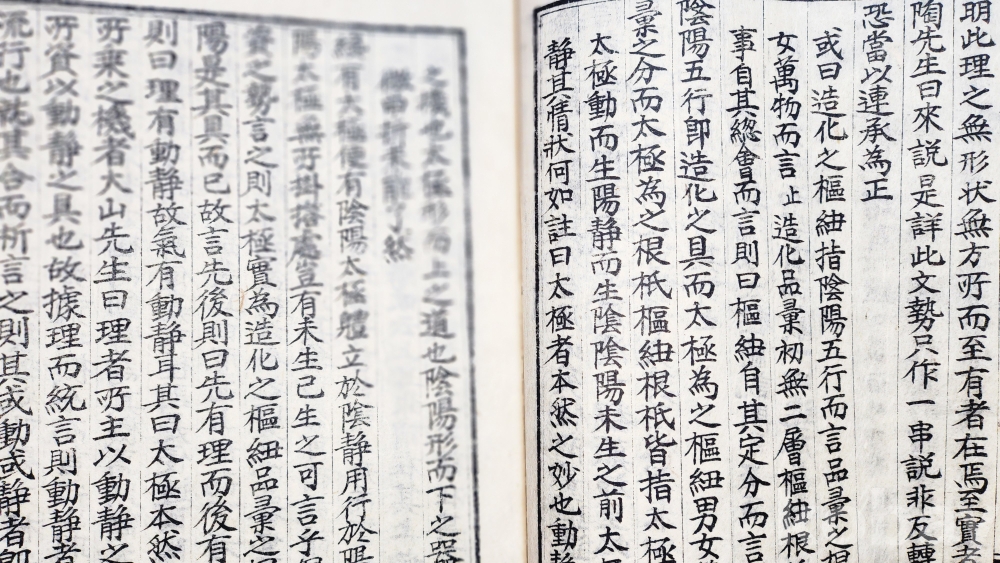 明此理之無形状無方所而至有者在焉至實者
陶先生曰來說是詳此文勢只作一串說非反轉
恐當以連承為正
或曰造化之樞紐指陰陽五行而言品彙之根
女萬物而言止造化品彙初無二層樞紐根
事自其緫會而言則曰樞紐自其定分而言
陰陽五行即造化之具而太極為之樞紐男女
彙之分而太極為之根柢樞紐根柢皆指太極
太極動而生陽静而生陰陰陽未生之前太
静其情状何如註曰太極者本然之妙也動静
之機也太極形而上之道也陰陽形而下之器
了然
有太極便有陰陽太極體立於陰静用行於陽
陽太極無所掛搭處豈有未生已生之可言乎
之勢言之則太極實為造化之樞紐品彙之
陽是其具而已故言先後則曰先有理而後有
則曰理有動静故氣有動静耳其曰太極本然
所乘之機者大山先生曰理者所主以動静之
所資以動静之具也故據理而統言則動静者
流行也就其合而析言之則其或動或静者即